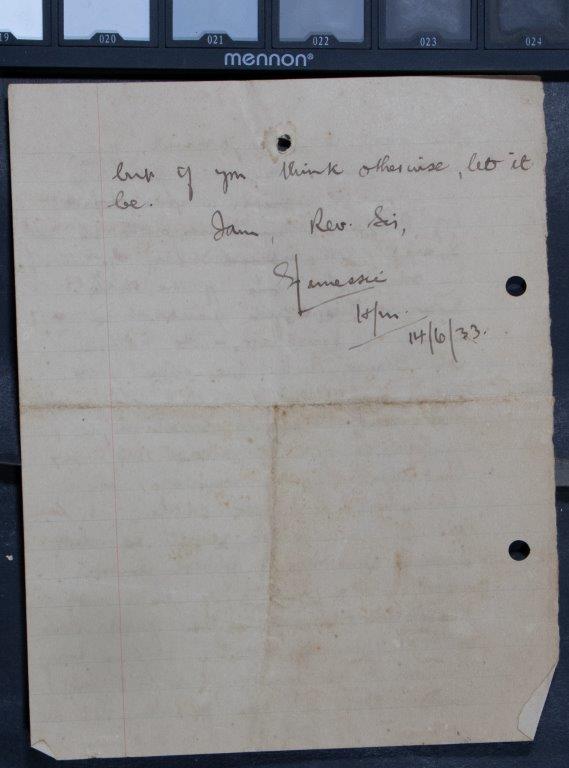 19 020 021 022 023 024
mennon®
but if you think otherwise, let it
be.
I am, Rev. Sir,
H/m.
14/6/33.